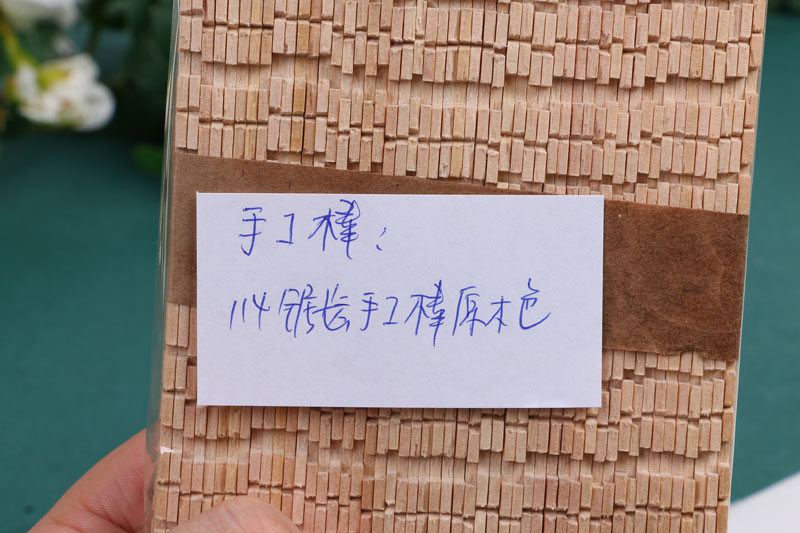 手工棒：
114锯长手工棒原木色